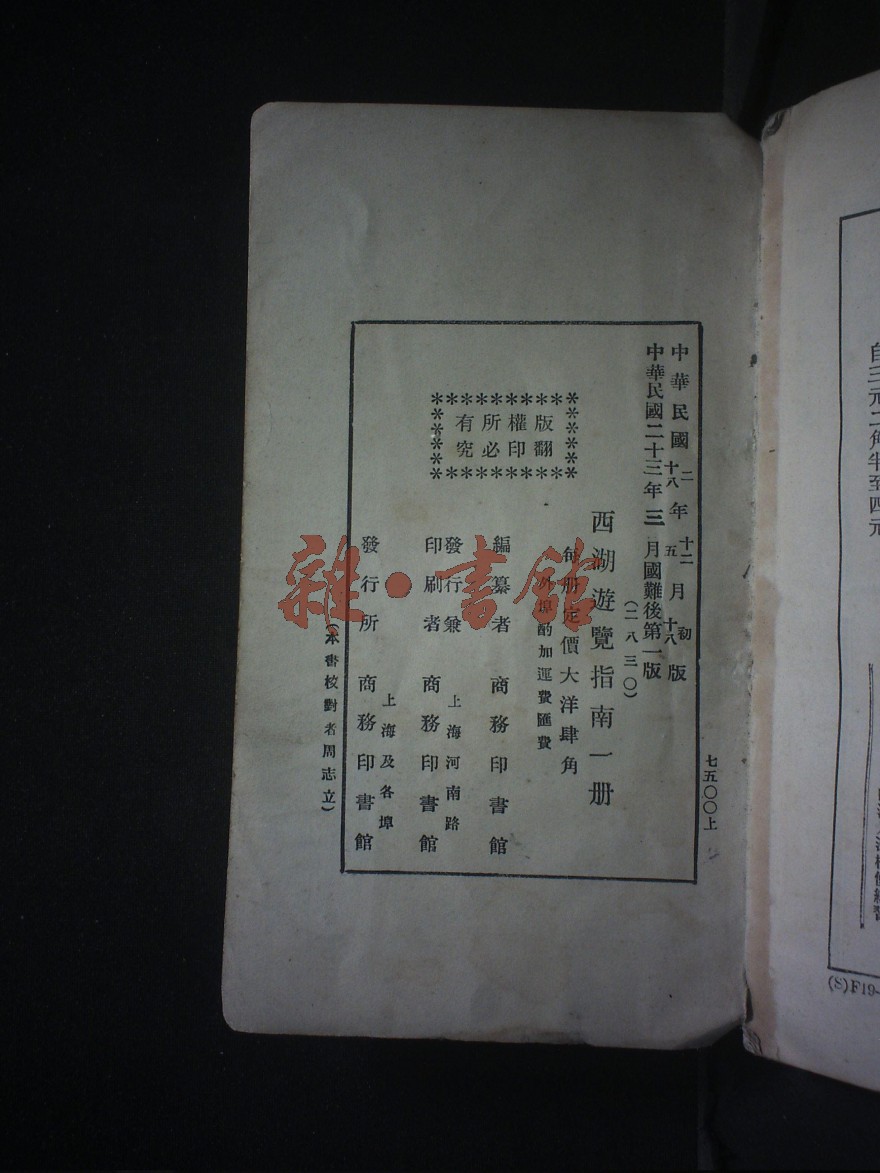 七五〇〇上
中華民國二年十二月初版
十八 五 十八
中華民國二十三年三月國難後第一版
(二八三〇)
西湖遊覽指南一册
每册定價大洋肆角
外埠酌加運費匯費
版權所有
翻印必究
編纂者 商務印書館
發行兼
印刷者
上海河南路
商務印書館
發行所
上海及各埠
商務印書館
(本書校對者周志立)
雜·書館
自三元二角半至四元
(S)F19-